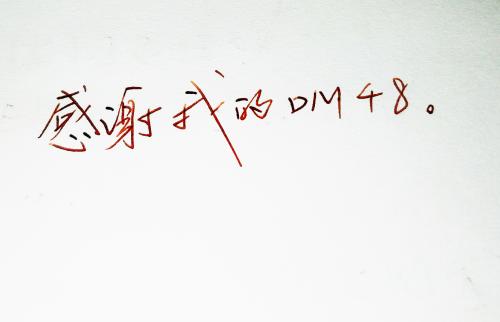 感谢我的DM48。